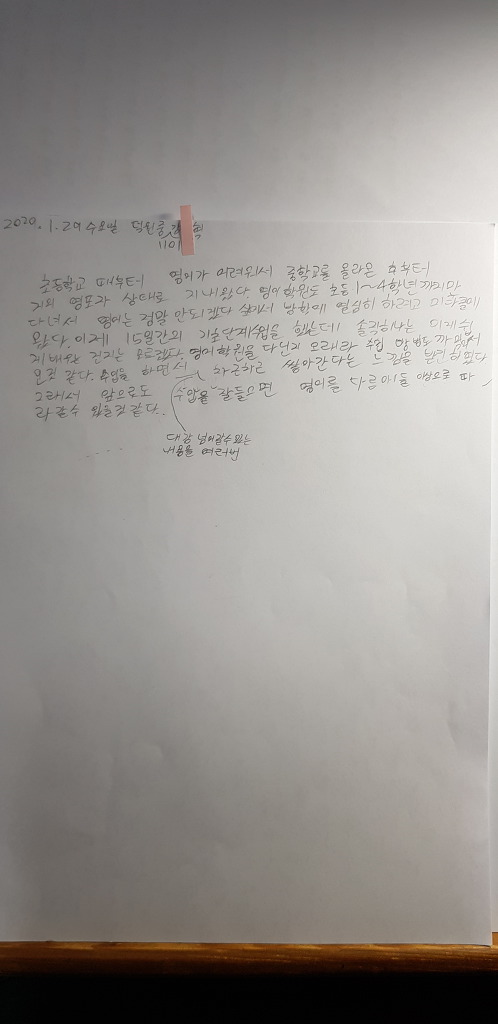 2020.1.29 수요일 덕원중 김 혁
1101
초등학교 때부터 영어가 어려워서 중학교를 올라온 후부터
거의 영포자 상태로 지내왔다. 영어학원도 초등 1~4학년까지만
다녀서 영어는 정말 안되겠다 싶어서 방학에 열심히 하려고 이학원에
왔다. 이제 15일간의 기초단계수업을 했는데 솔직히 나는 이게 쉽
게 배우는 건지는 모르겠다. 영어학원을 다닌지 오래라 수업 한번도 까먹어서
인것 같다. 수업을 하면서 차근차근 쌓아간다는 느낌을 받긴하였다
그래서 앞으로도 수업을 잘들으면 영어를 다른아이들 이상으로 따
라갈수 있을것 같다..
대강 넘어갈수있는
내용을 여러번
....